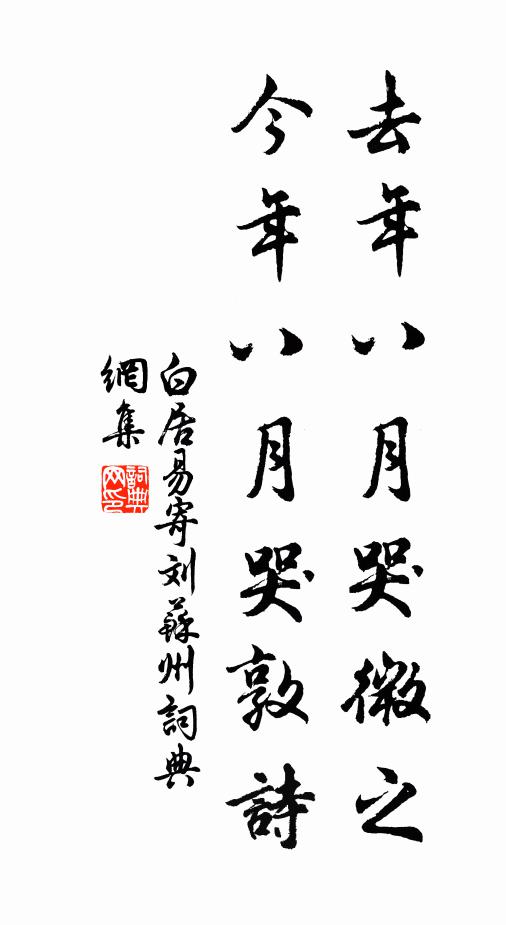 去年八月哭微之
今年八月哭敦詩
白居易寄刘蘇州詞典
網集
詞典
网印